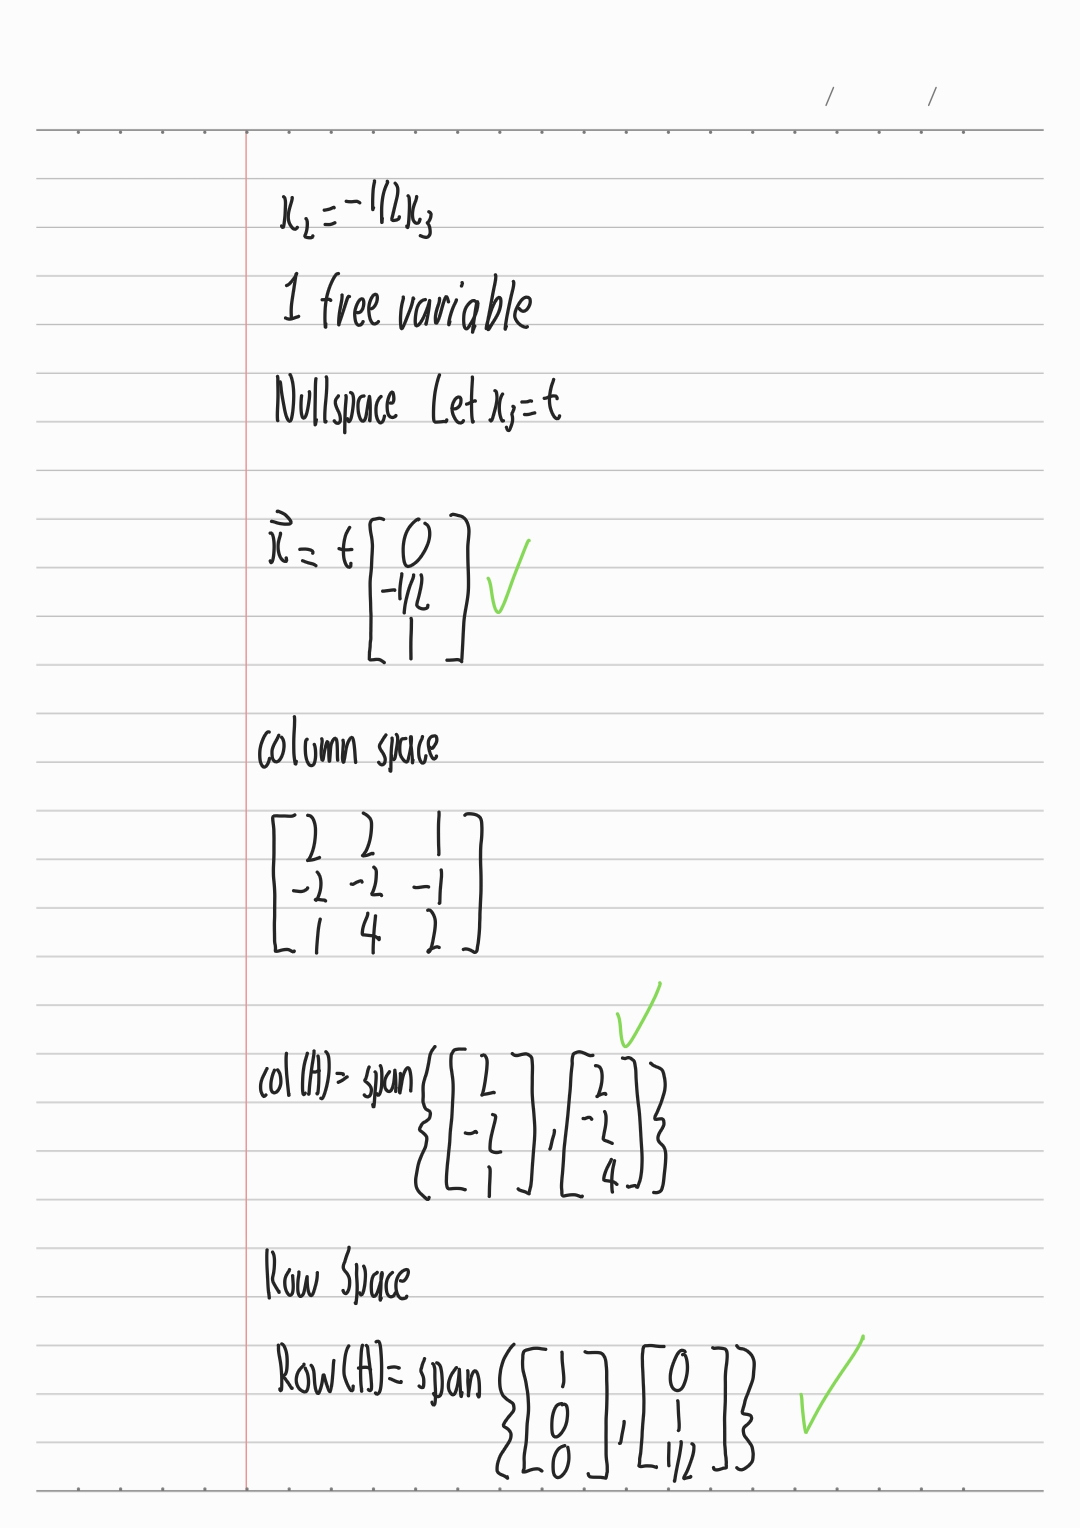 / /
x₂ = -1/2x₃
1 free variable
Nullspace Let x₃ = t
x⃗ = t [0
-1/2
1]
column space
[2 2 1
-2 -2 -1
1 4 2]
col(A) = span {[2
-2
1], [2
-2
4]}
Row Space
Row(A) = span {[1
0
0], [0
1
1/2]}